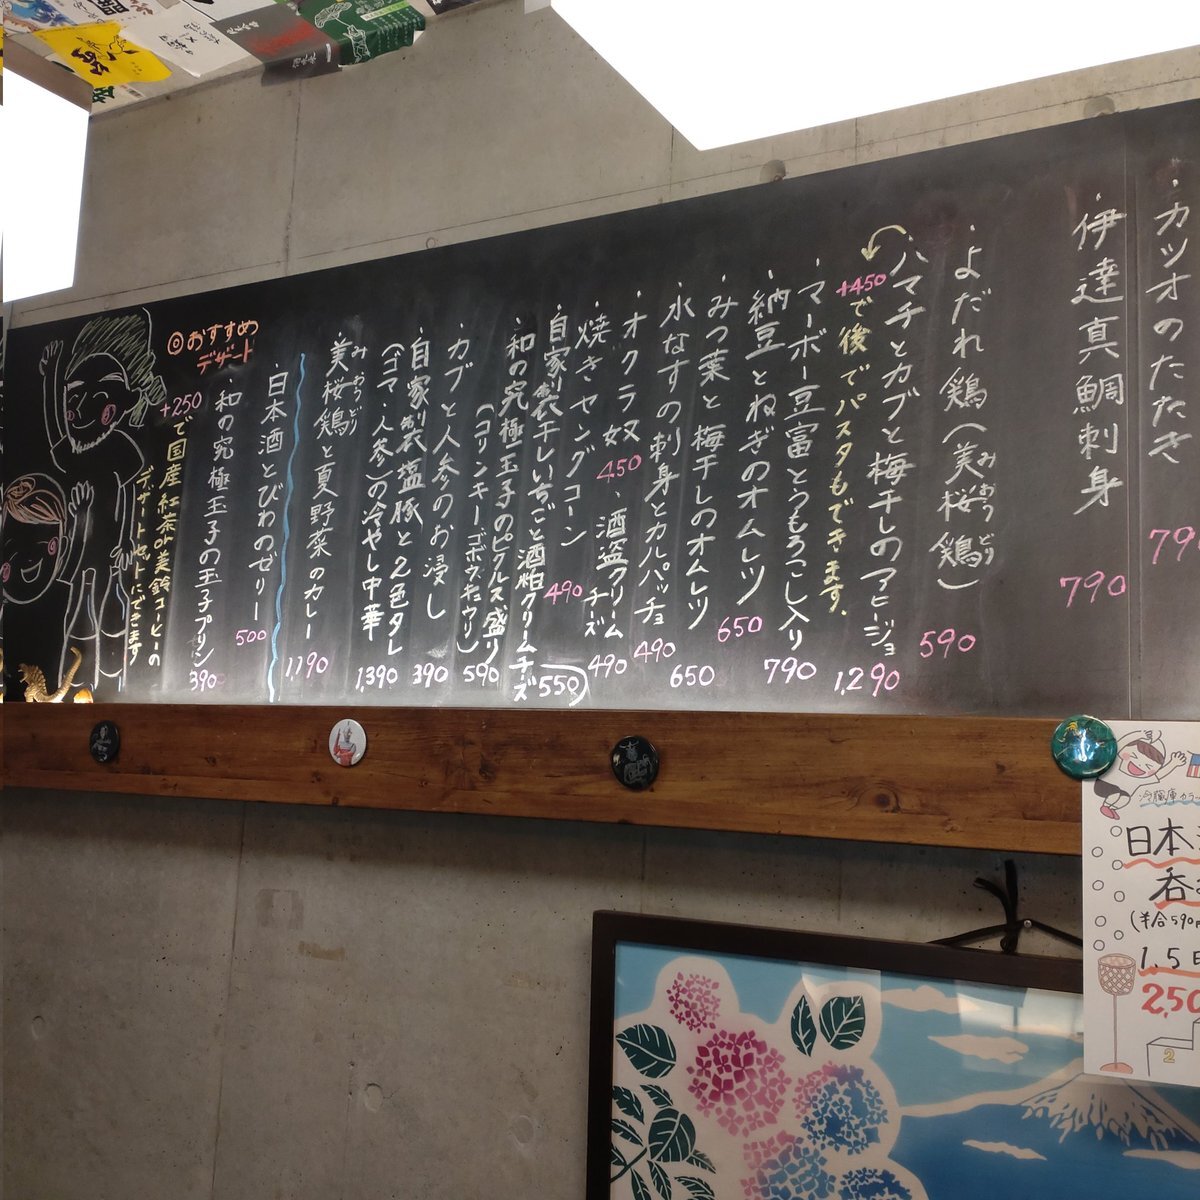 ・カツオのたたき 790
・伊達真鯛刺身 790
・よだれ鶏(美桜鶏) 590
みおうどり
・ハマチとカブと梅干しのアヒージョ 1,290
+450で後でパスタもできます。
・マーボー豆富とうもろこし入り 790
・納豆とねぎのオムレツ 650
・みつ葉と梅干しのオムレツ 650
・水なすの刺身とカルパッチョ 490
・オクラ奴 450
・酒盗クリームチーズ 490
・焼きヤングコーン 490
・自家製干しいちごと酒粕クリームチーズ 550
・和の究極玉子のピクルス盛り 590
(コリンキーゴボウきゅうり)
・カブと人参のお浸し 390
・自家製塩豚と2色タレ
(ゴマ・人参)の冷やし中華 1,390
・美桜鶏と夏野菜のカレー 1,190
みおうどり
◎おすすめ
デザート
・日本酒とびわのゼリー 500
・和の究極玉子の玉子プリン 390
+250で国産紅茶or美鈴コーヒーの
デザートセットにできます
冷蔵庫
日本
呑
1.5
2